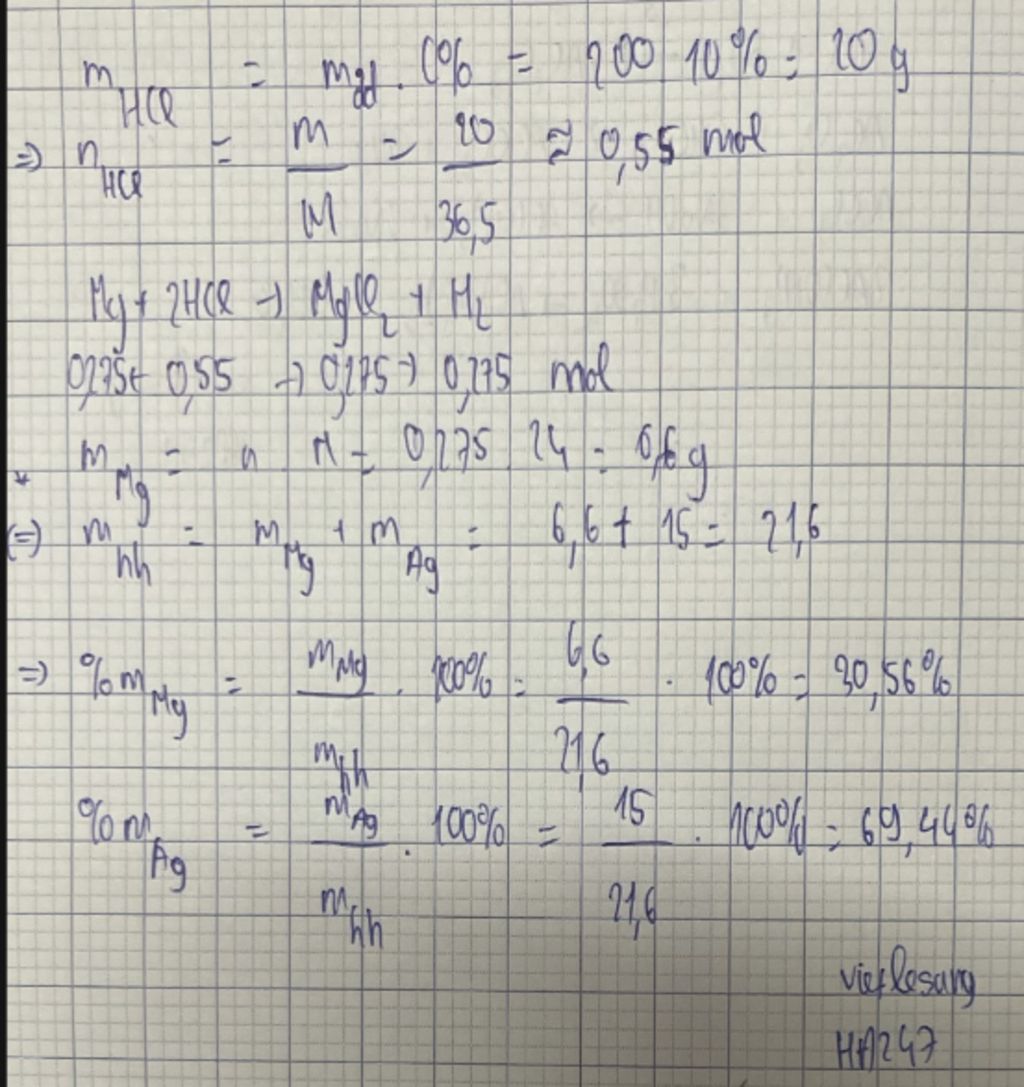 m_HCl = mdd . C% = 200 10% = 20 g
=> n_HCl = m/M = 20/36,5 ≈ 0,55 mol
Mg + 2HCl → MgCl2 + H2
0,275 ← 0,55 → 0,275 → 0,275 mol
* m_Mg = n M = 0,275 . 24 = 6,6 g
(=) m_hh = m_Mg + m_Ag = 6,6 + 15 = 21,6
=> %m_Mg = m_Mg/m_hh . 100% = 6,6/21,6 . 100% = 30,56%
%m_Ag = m_Ag/m_hh . 100% = 15/21,6 . 100% = 69,44%
HA247